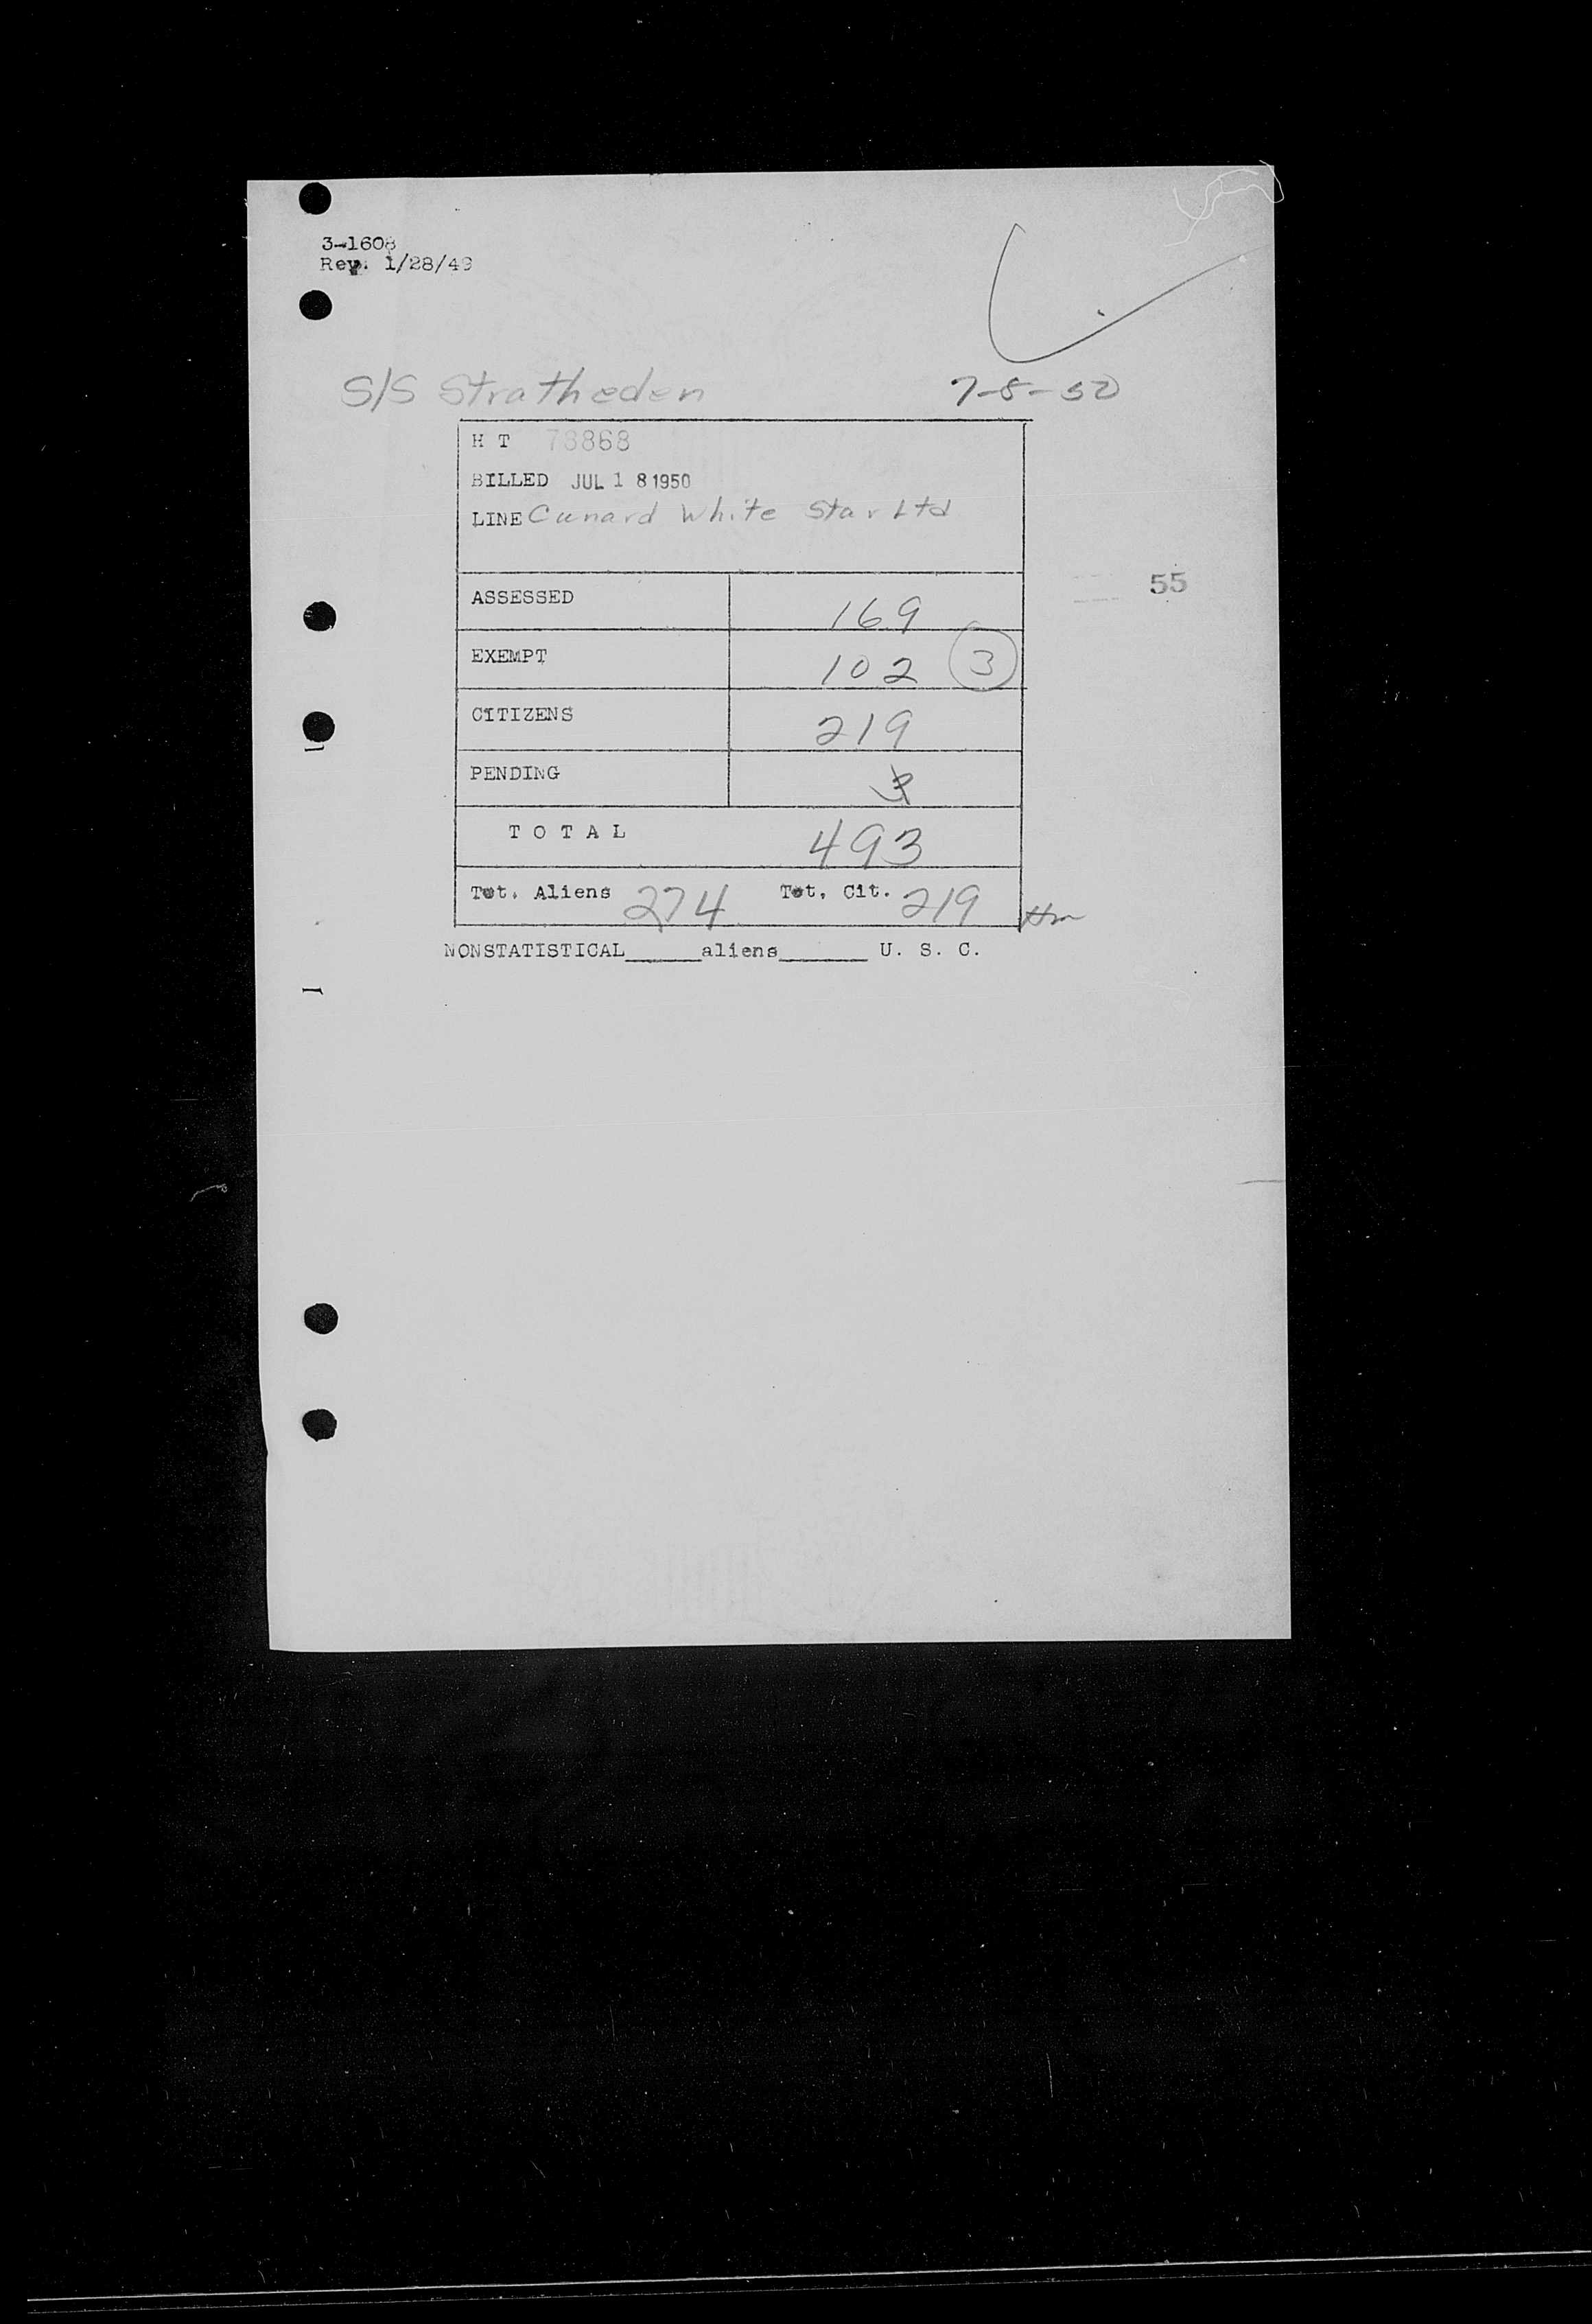 3-1608
Rev. 1/28/49
S/S Stratheden 7-8-50
H T 73868
BILLED JUL 18 1950
LINE Cunard White Star Ltd
55
ASSESSED 169
EXEMPT 102 3
CITIZENS 219
PENDING 3
TOTAL 493
Tot. Aliens 274 Tot. Cit. 219
NONSTATISTICAL______aliens_______ U. S. C.